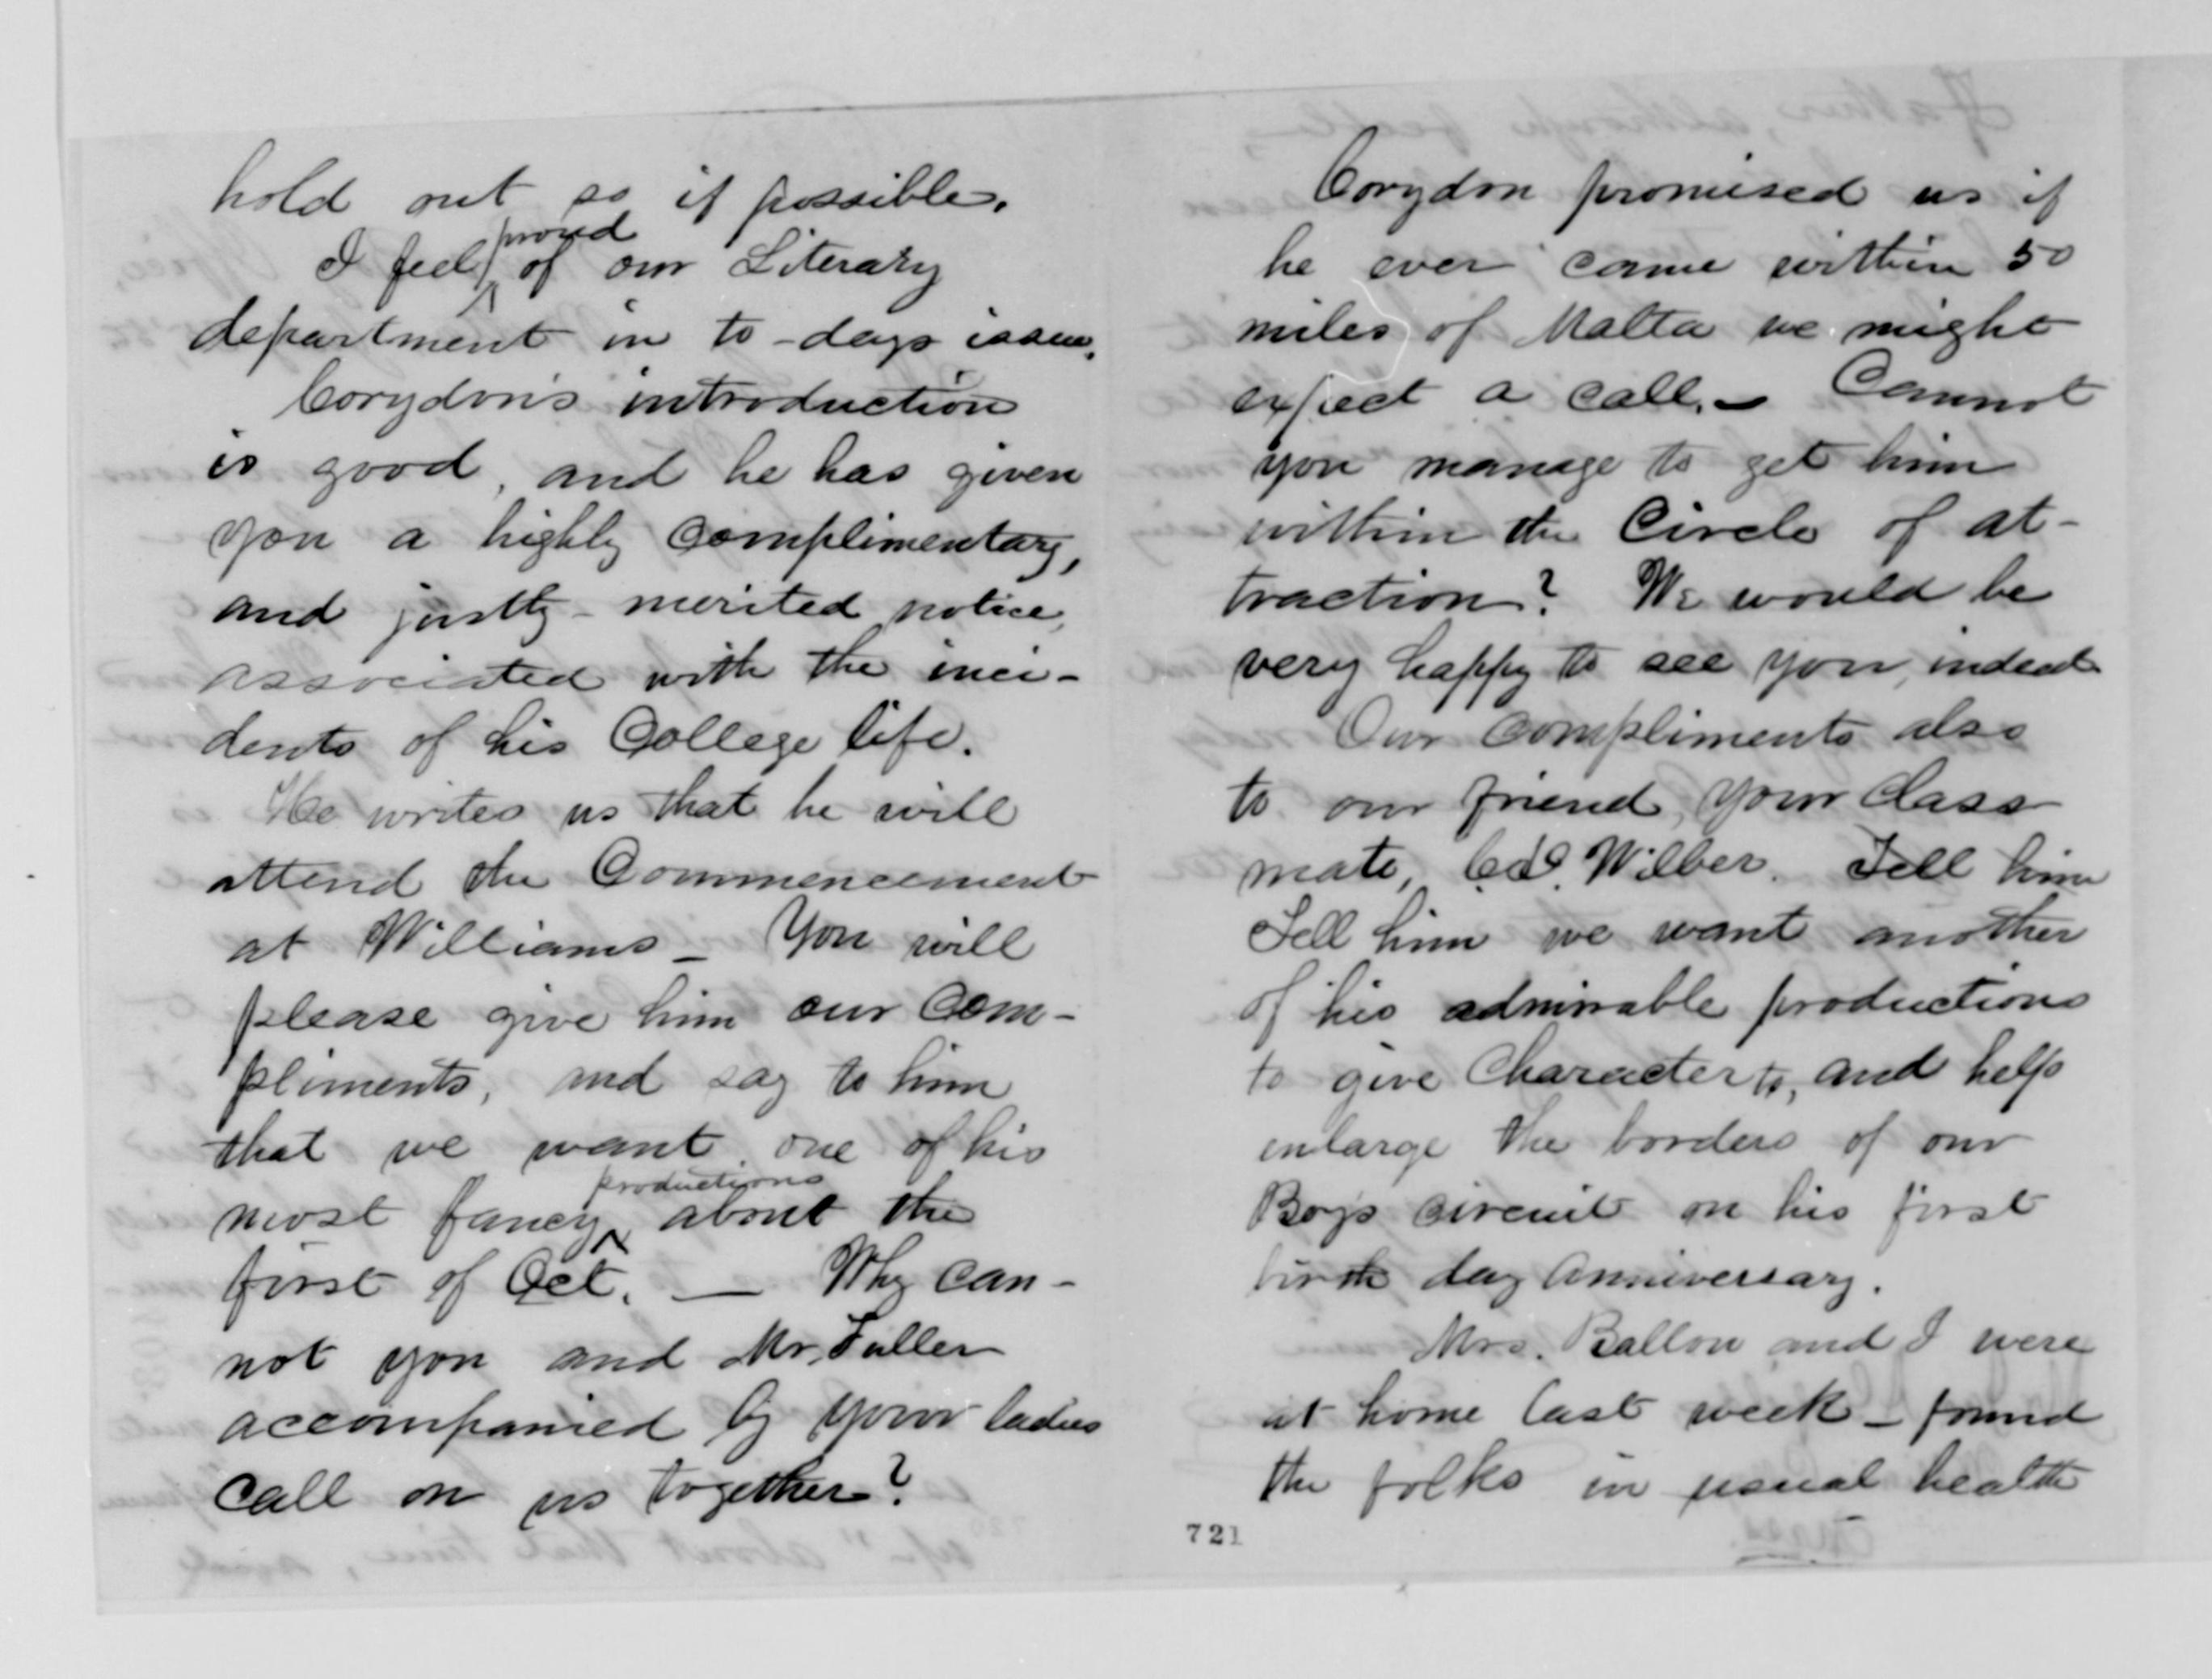 hold out so if possible.
I feel proud of our Literary
department in to-days issue.
Corydon's introduction
is good, and he has given
you a highly complimentary,
and justly-merited notice,
associated with the inci-
dents of his College life.
He writes us that he will
attend the Commencement
at Williams - You will
please give him our Com-
pliments, and say to him
that we want one of his
most fancy productions about the
first of Oct. — Why can-
not you and Mr. Fuller
accompanied by your ladies
call on us together?
Corydon promised us if
he ever came within 50
miles of Malta we might
expect a call. - Cannot
you manage to get him
within the Circle of at-
traction? We would be
very happy to see you, indeed
Our compliments also
to our friend, your Class
mate, C.D. Wilber. Tell him
Tell him we want another
of his admirable productions
to give Character to, and help
enlarge the borders of our
Boy's circuit on his first
birth day Anniversary.
Mrs. Ballou and I were
at home last week - found
the folks in usual health
721